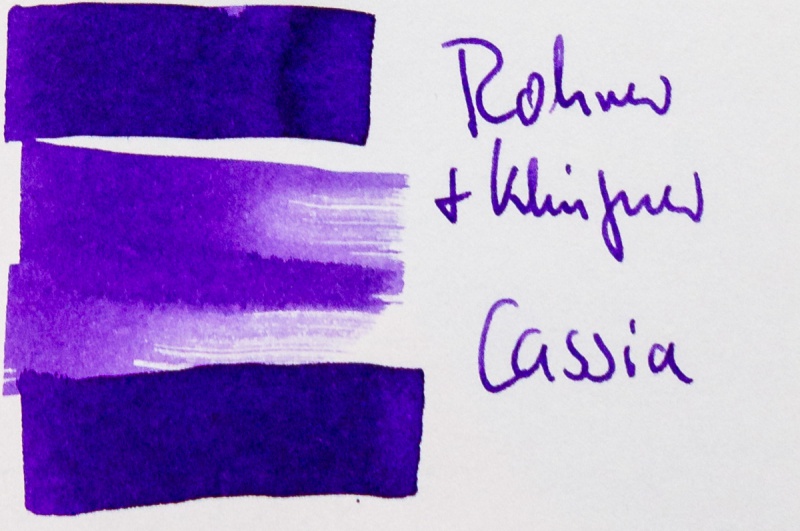 Rohrer
+ Klingner
Cassia